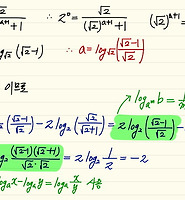 √2 / ((√2)^(a+1) + 1) ∴ 2^a = √2 / ((√2)^(a+1) + 1) (√2)^(a+1)
log_√2 (√2-1) ∴ a = log_√2 ((√2-1)/√2)
이므로
log_a^m b = 1/
2 (√2-1)/√2) - 2log_2 (√2/(√2+1)) = 2log_2 ((√2-1)/√2) -
log_2 ((√2-1)(√2+1))/(√2·√2) = 2log_2 1/2 = -2
log_a x - log_a y = log_a x/y 사용